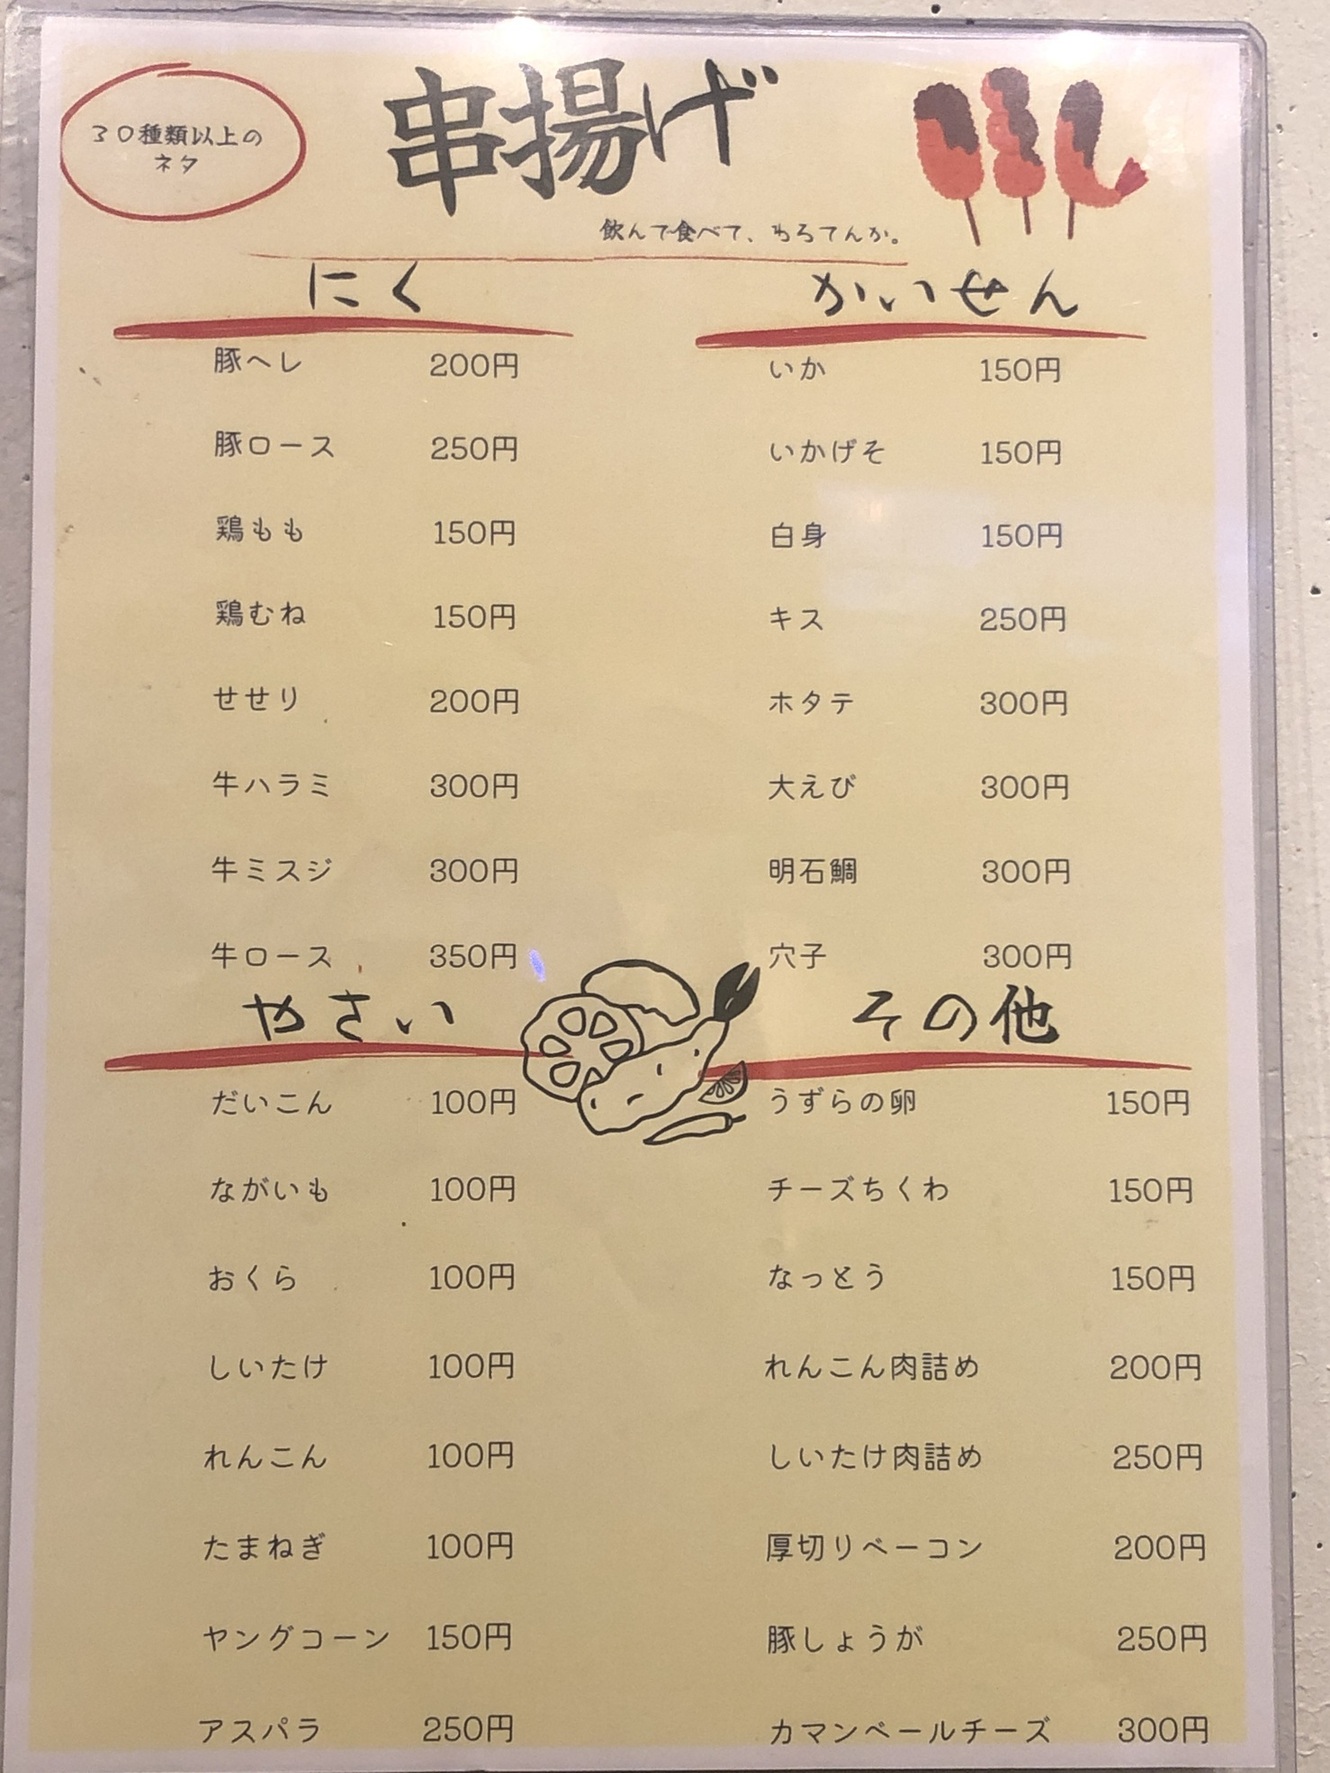 30種類以上の
ネタ
串揚げ
飲んで食べて、わろてんか。
にく
豚へレ 200円
豚ロース 250円
鶏もも 150円
鶏むね 150円
せせり 200円
牛ハラミ 300円
牛ミスジ 300円
牛ロース 350円
かいせん
いか 150円
いかげそ 150円
白身 150円
キス 250円
ホタテ 300円
大えび 300円
明石鯛 300円
穴子 300円
やさい
だいこん 100円
ながいも 100円
おくら 100円
しいたけ 100円
れんこん 100円
たまねぎ 100円
ヤングコーン 150円
アスパラ 250円
その他
うずらの卵 150円
チーズちくわ 150円
なっとう 150円
れんこん肉詰め 200円
しいたけ肉詰め 250円
厚切りベーコン 200円
豚しょうが 250円
カマンベールチーズ 300円